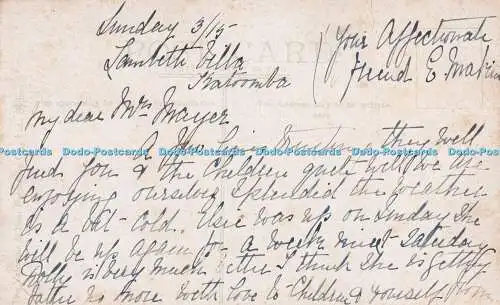 Sunday 3/15
Lambeth Villa
Katoomba
(Your Affectionate
friend E Makin
My dear Mrs Mayer
A few lines they will
find you & the children quite well. We are
enjoying ourselves splendid the weather
is a bit cold. Elsie was up on Sunday She
will be up again for a week next Saturday
Dolly is very much better I think she is getting
no more with love to Children & yourself from
Dodo-Postcards Dodo-Postcards Dodo-Postcards Dodo-Postcards